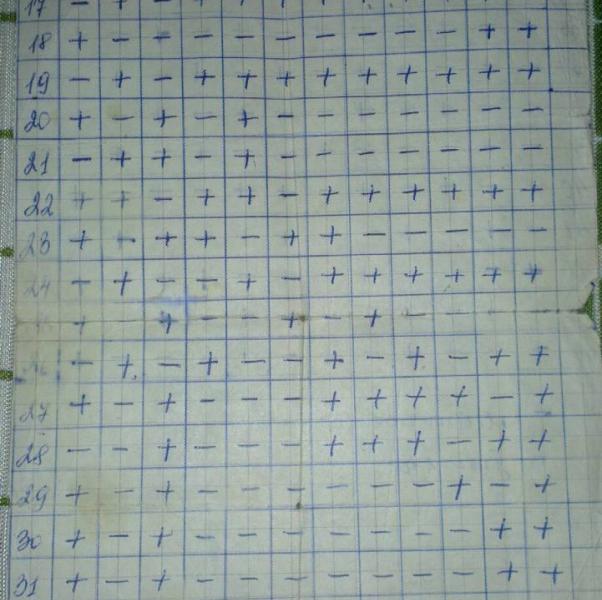 17 − + − + + + + + + + + +
18 + − − − − − − − − − + +
19 − + − + + + + + + + + +
20 + − + − + − − − − − − −
21 − + + − + − − − − − − −
22 + + − + + − + + + + + +
23 + − + + − + + − − − − −
24 − + − − + − + + + + + +
+ − + − − + − + − − − −
− + − + − − + − + − + +
27 + − + − − − + + + + − +
28 − − + − − − + + + − + +
29 + − + − − − − − − + − +
30 + − + − − − − − − − + +
31 + − + − − − − − − − + +